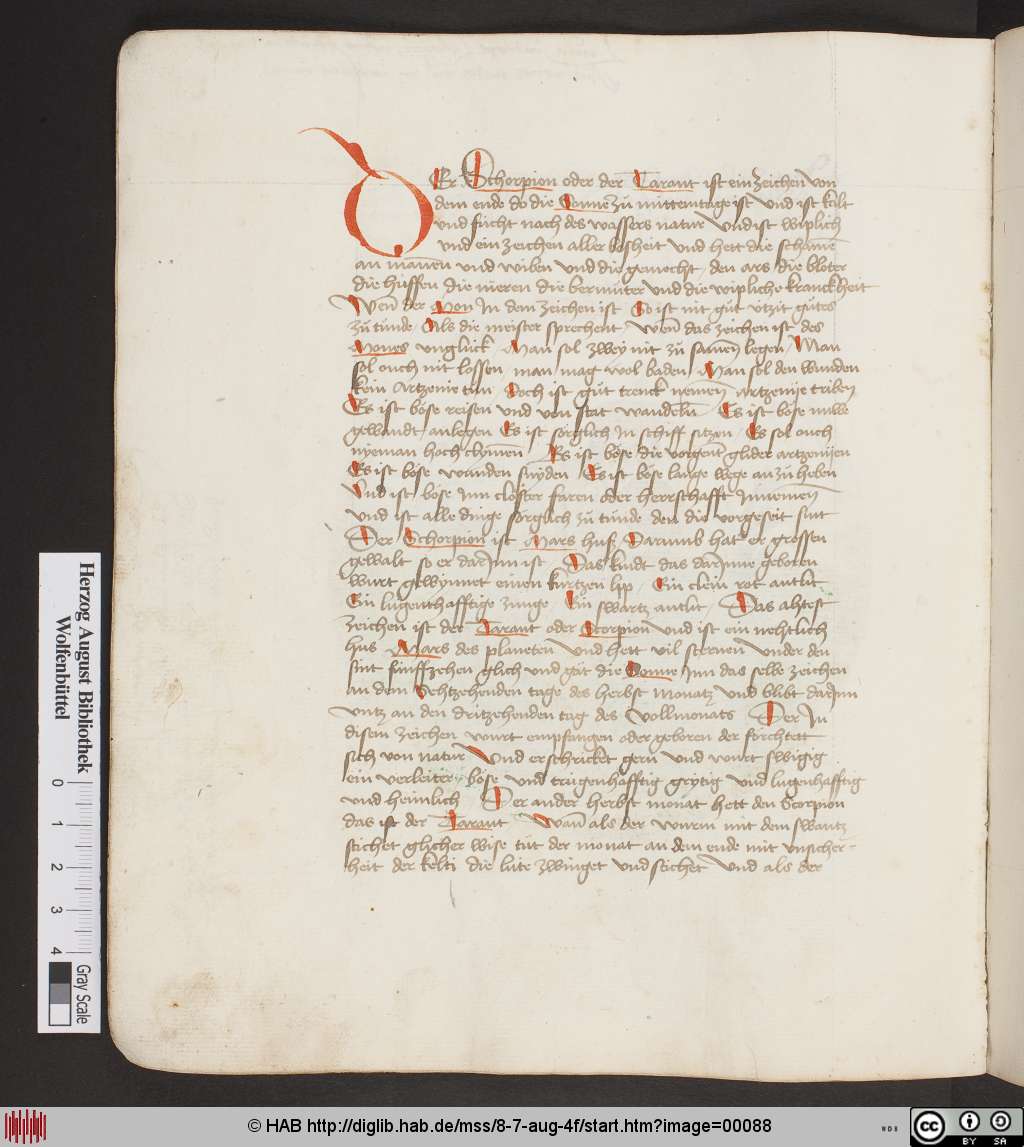 DEr Schorpion oder der Tarant ist ein zeichen von
dem ende do die Sonne zu mittemtage ist vnd ist kalt
vnd fucht nach des wassers natur vnd ist wiplich
vnd ein zeichen aller bosheit vnd hett die schamē
an mannen vnd wiben vnd die gemecht den ars die bloter
die huffen die nieren die bermuter vnd die wipliche kranckheit
Wen̄ der Mon In dem zeichen ist So ist nit gut vtzit gutes
zu tunde Als die meister sprechent Wen̄ das zeichen ist des
Mones vnglück Man sol zwey nit zu samen̄ legen Man
sol ouch nit lossen man mag wol baden Man sol den wunden
kein Artzenie tun Doch ist gut trenck nemen̄ artzenije triben
Es ist böse reisen vnd von stat wandeln̄ Es ist böse nuwe
gewandt anlegen Es ist sorglich In schiff sitzen Es sol ouch
nyeman hoch clymmen Es ist böse die vorgent̄ glider artzonijen
Es ist böse wunden snyden Es ist böse lange wege an zu heben
Vnd ist böse Inn closter faren oder herrschafft Innemen̄
vnd ist alle dinge sorglich zu tunde den die vorgeseit sint
Der Schorpion ist Mars huß Darumb hat er grossen
gewalt so er darInn ist Das kindt das darInne geboren
wurt gewynnet einen kurtzen lip Ein clein rot antlit
Ein lugenthafftige zunge Ein swartz antlit Das ahtest
zeichen ist der Tarant oder Scorpion vnd ist ein nehtlich
hus Mars des planeten vnd hett vil sternen vnder den
sint funffzehen glich vnd gat die Sonne Inn das selbe zeichen
an dem Sehtzehenden tage des herbst monatz vnd blibt darInn
vntz an den dritzehenden tag des vollmonats Der In
disem zeichen wurt empfangen oder geboren der forchtett
sich von natur Vnd erschricket gern vnd wurt swigig
ein verleiter böse vnd trugenhafftig grytig vnd lugenhafftig
vnd heimlich Der ander herbst monat hett den Scorpion
das ist der Tarant Wan̄ als der wurm mit dem swantz
stichet glicher wise tut der monat an dem ende mit vnsicher-
heit der kelti die lute zwinget vnd stichet Vnd als der
Herzog August Bibliothek
Wolfenbüttel
0 1 2 3 4
Gray Scale
© HAB http://diglib.hab.de/mss/8-7-aug-4f/start.htm?image=00088
WDB
cc BY SA